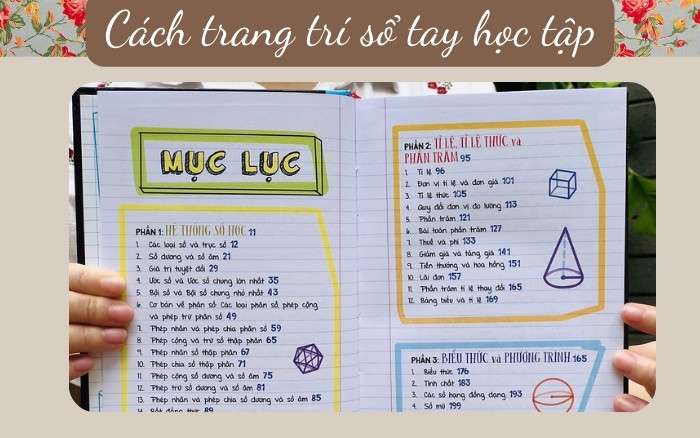 Cách trang trí sổ tay học tập
MỤC LỤC
PHẦN 1: HỆ THỐNG SỐ HỌC 11
1. Các loại số và trục số 12
2. Số dương và số âm 21
3. Giá trị tuyệt đối 29
4. Ước số và Ước số chung lớn nhất 35
5. Bội số và Bội số chung nhỏ nhất 43
6. Cơ bản về phân số: Các loại phân số, phép cộng
và phép trừ phân số 49
7. Phép nhân và phép chia phân số 59
8. Phép cộng và trừ số thập phân 65
9. Phép nhân số thập phân 67
10. Phép chia số thập phân 71
11. Phép cộng số dương và số âm 75
12. Phép trừ số dương và số âm 81
13. Phép nhân và phép chia số dương và số âm 85
14. Bất đẳng thức 89
PHẦN 2: TỈ LỆ, TỈ LỆ THỨC và
PHẦN TRĂM 95
1. Tỉ lệ 96
2. Đơn vị tỉ lệ và đơn giá 101
3. Tỉ lệ thức 105
4. Quy đổi đơn vị đo lường 113
5. Phần trăm 121
6. Bài toán phần trăm 127
7. Thuế và phí 133
8. Giảm giá và tăng giá 141
9. Tiền thưởng và hoa hồng 151
10. Lãi đơn 157
11. Phần trăm tỉ lệ thay đổi 165
12. Bảng biểu và tỉ lệ 169
PHẦN 3: BIỂU THỨC và PHƯƠNG TRÌNH 165
1. Biểu thức 176
2. Tính chất 183
3. Các số hạng đồng dạng 193
4. Số mũ 199